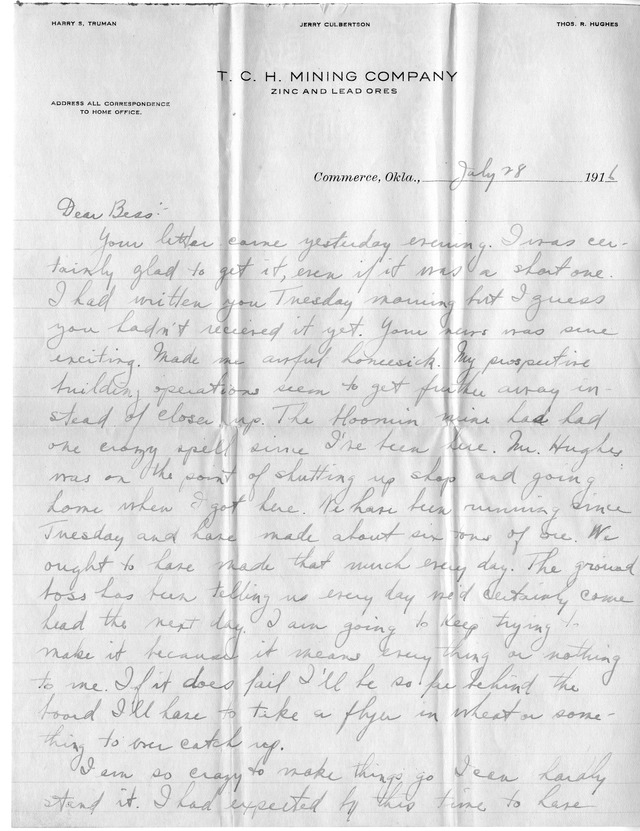 HARRY S. TRUMAN JERRY CULBERTSON THOS. R. HUGHES
T. C. H. MINING COMPANY
ZINC AND LEAD ORES
ADDRESS ALL CORRESPONDENCE
TO HOME OFFICE.
Commerce, Okla., July 28 1916
Dear Bess:-
Your letter came yesterday evening. I was cer-
tainly glad to get it, even if it was a short one.
I had written you Tuesday morning but I guess
you hadn't recieved it yet. Your news was sure
exciting. Made me awful homesick. My prospective
building operations seem to get further away in-
stead of closer up. The bloomin mine had had
one crazy spell since I've been here. Mr. Hughes
was on the point of shutting up shop and going
home when I got here. We have been running since
Tuesday and have made about six tons of ore. We
ought to have made that much every day. The ground
boss has been telling us every day we'd certainly come
head the next day. I am going to keep trying to
make it because it means everything or nothing
to me. If it does fail I'll be so far behind the
board I'll have to take a flyer in wheat or some-
thing to ever catch up.
I am so crazy to make things go I can hardly
stand it. I had expected by this time to have